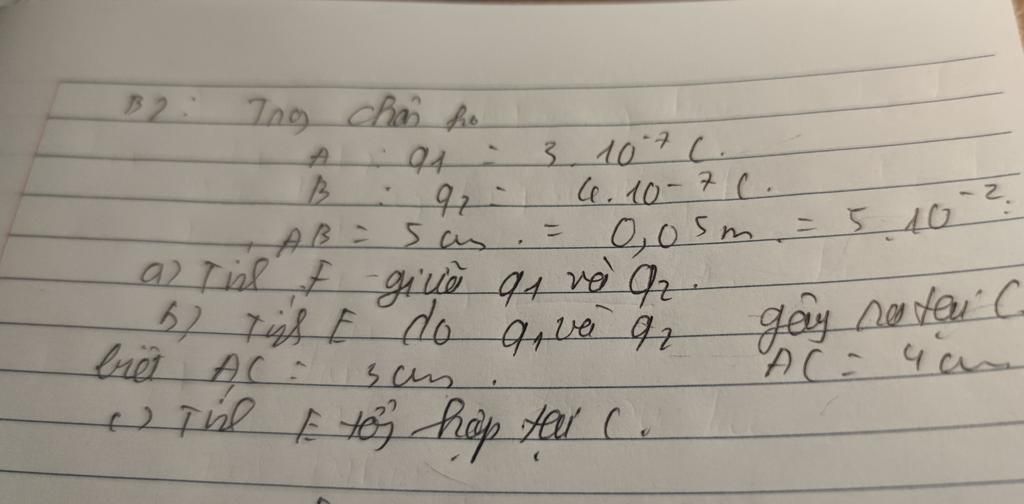 B2: Trong chân ko
A : q1 = 3.10-7 C.
B : q2 = 4.10-7 C.
AB = 5 cm. = 0,05m. = 5.10-2.
a) Tính F giữa q1 và q2.
b) Tính E do q1 và q2 gây ra tại C.
biết AC = 3cm. AC = 4 cm
c) Tính E tổng hợp tại C.